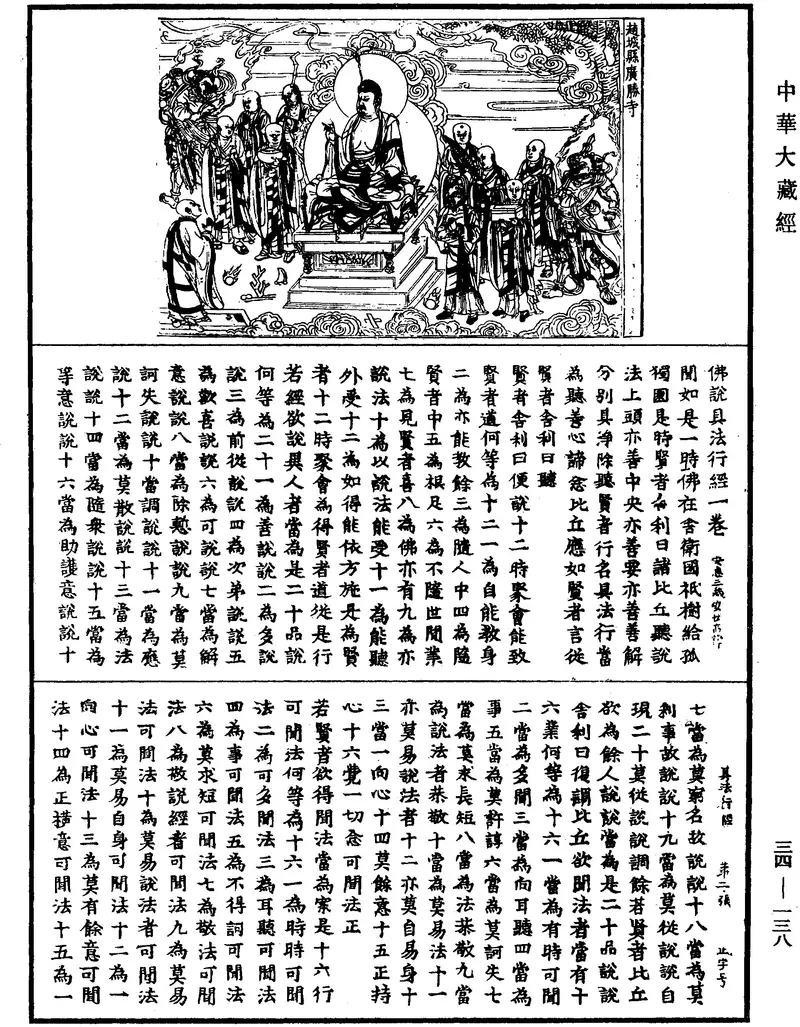 中華大藏經
趙城縣廣勝寺
佛說具法行經一卷 安息三藏安世高譯
聞如是一時佛在舍衛國祇樹給孤
獨園是時賢者舍利曰諸比丘聽說
法上頭亦善中央亦善要亦善善解
分別具淨除聽賢者行名具法行當
為聽善心諦念比丘應如賢者言從
賢者舍利曰聽
賢者舍利曰便說十二時聚會能致
賢者道何等為十二一為自能教身
二為亦能教餘三為隨人中四為隨
賢者中五為根足六為不隨世間業
七為見賢者喜八為佛亦有九為亦
說法十為以說法能受十一為能聽
外受十二為如得能依方施是為賢
者十二時聚會為得賢者道從是行
若經欲說異人者當為是二十品說
何等為二十一為善說說二為多說
說三為前從說說四為次第說說五
為歡喜說說六為可說說七當為解
意說說八當為除慙說說九當為莫
訶失說說十當調說說十一當為應
說十二當為莫散說說十三當為法
說說十四當為隨衆說說十五當為
等意說說十六當為助護意說說十
具法行經 第二張 止字号
七當為莫窮名故說說十八當為莫
利事故說說十九當為莫從說說自
現二十莫從說說調餘若賢者比丘
欲為餘人說說當為是二十品說說
舍利曰復謂比丘欲聞法者當有十
六業何等為十六一當為有時可聞
二當為多聞三當為向耳聽四當為
事五當為莫訐諄六當為莫訶失七
當為莫求長短八當為法恭敬九當
為說法者恭敬十當為莫易法十一
亦莫易說法者十二亦莫自易身十
三當一向心十四莫餘意十五正持
心十六覺一切念可聞法正
若賢者欲得聞法當為案是十六行
可聞法何等為十六一為時時可聞
法二為可多聞法三為耳聽可聞法
四為事可聞法五為不得訶可聞法
六為莫求短可聞法七為敬法可聞
法八為敬說經者可聞法九為莫易
法可聞法十為莫易說法者可聞法
十一為莫易自身可聞法十二為一
向心可聞法十三為莫有餘意可聞
法十四為正措意可聞法十五為一
三四—一三八